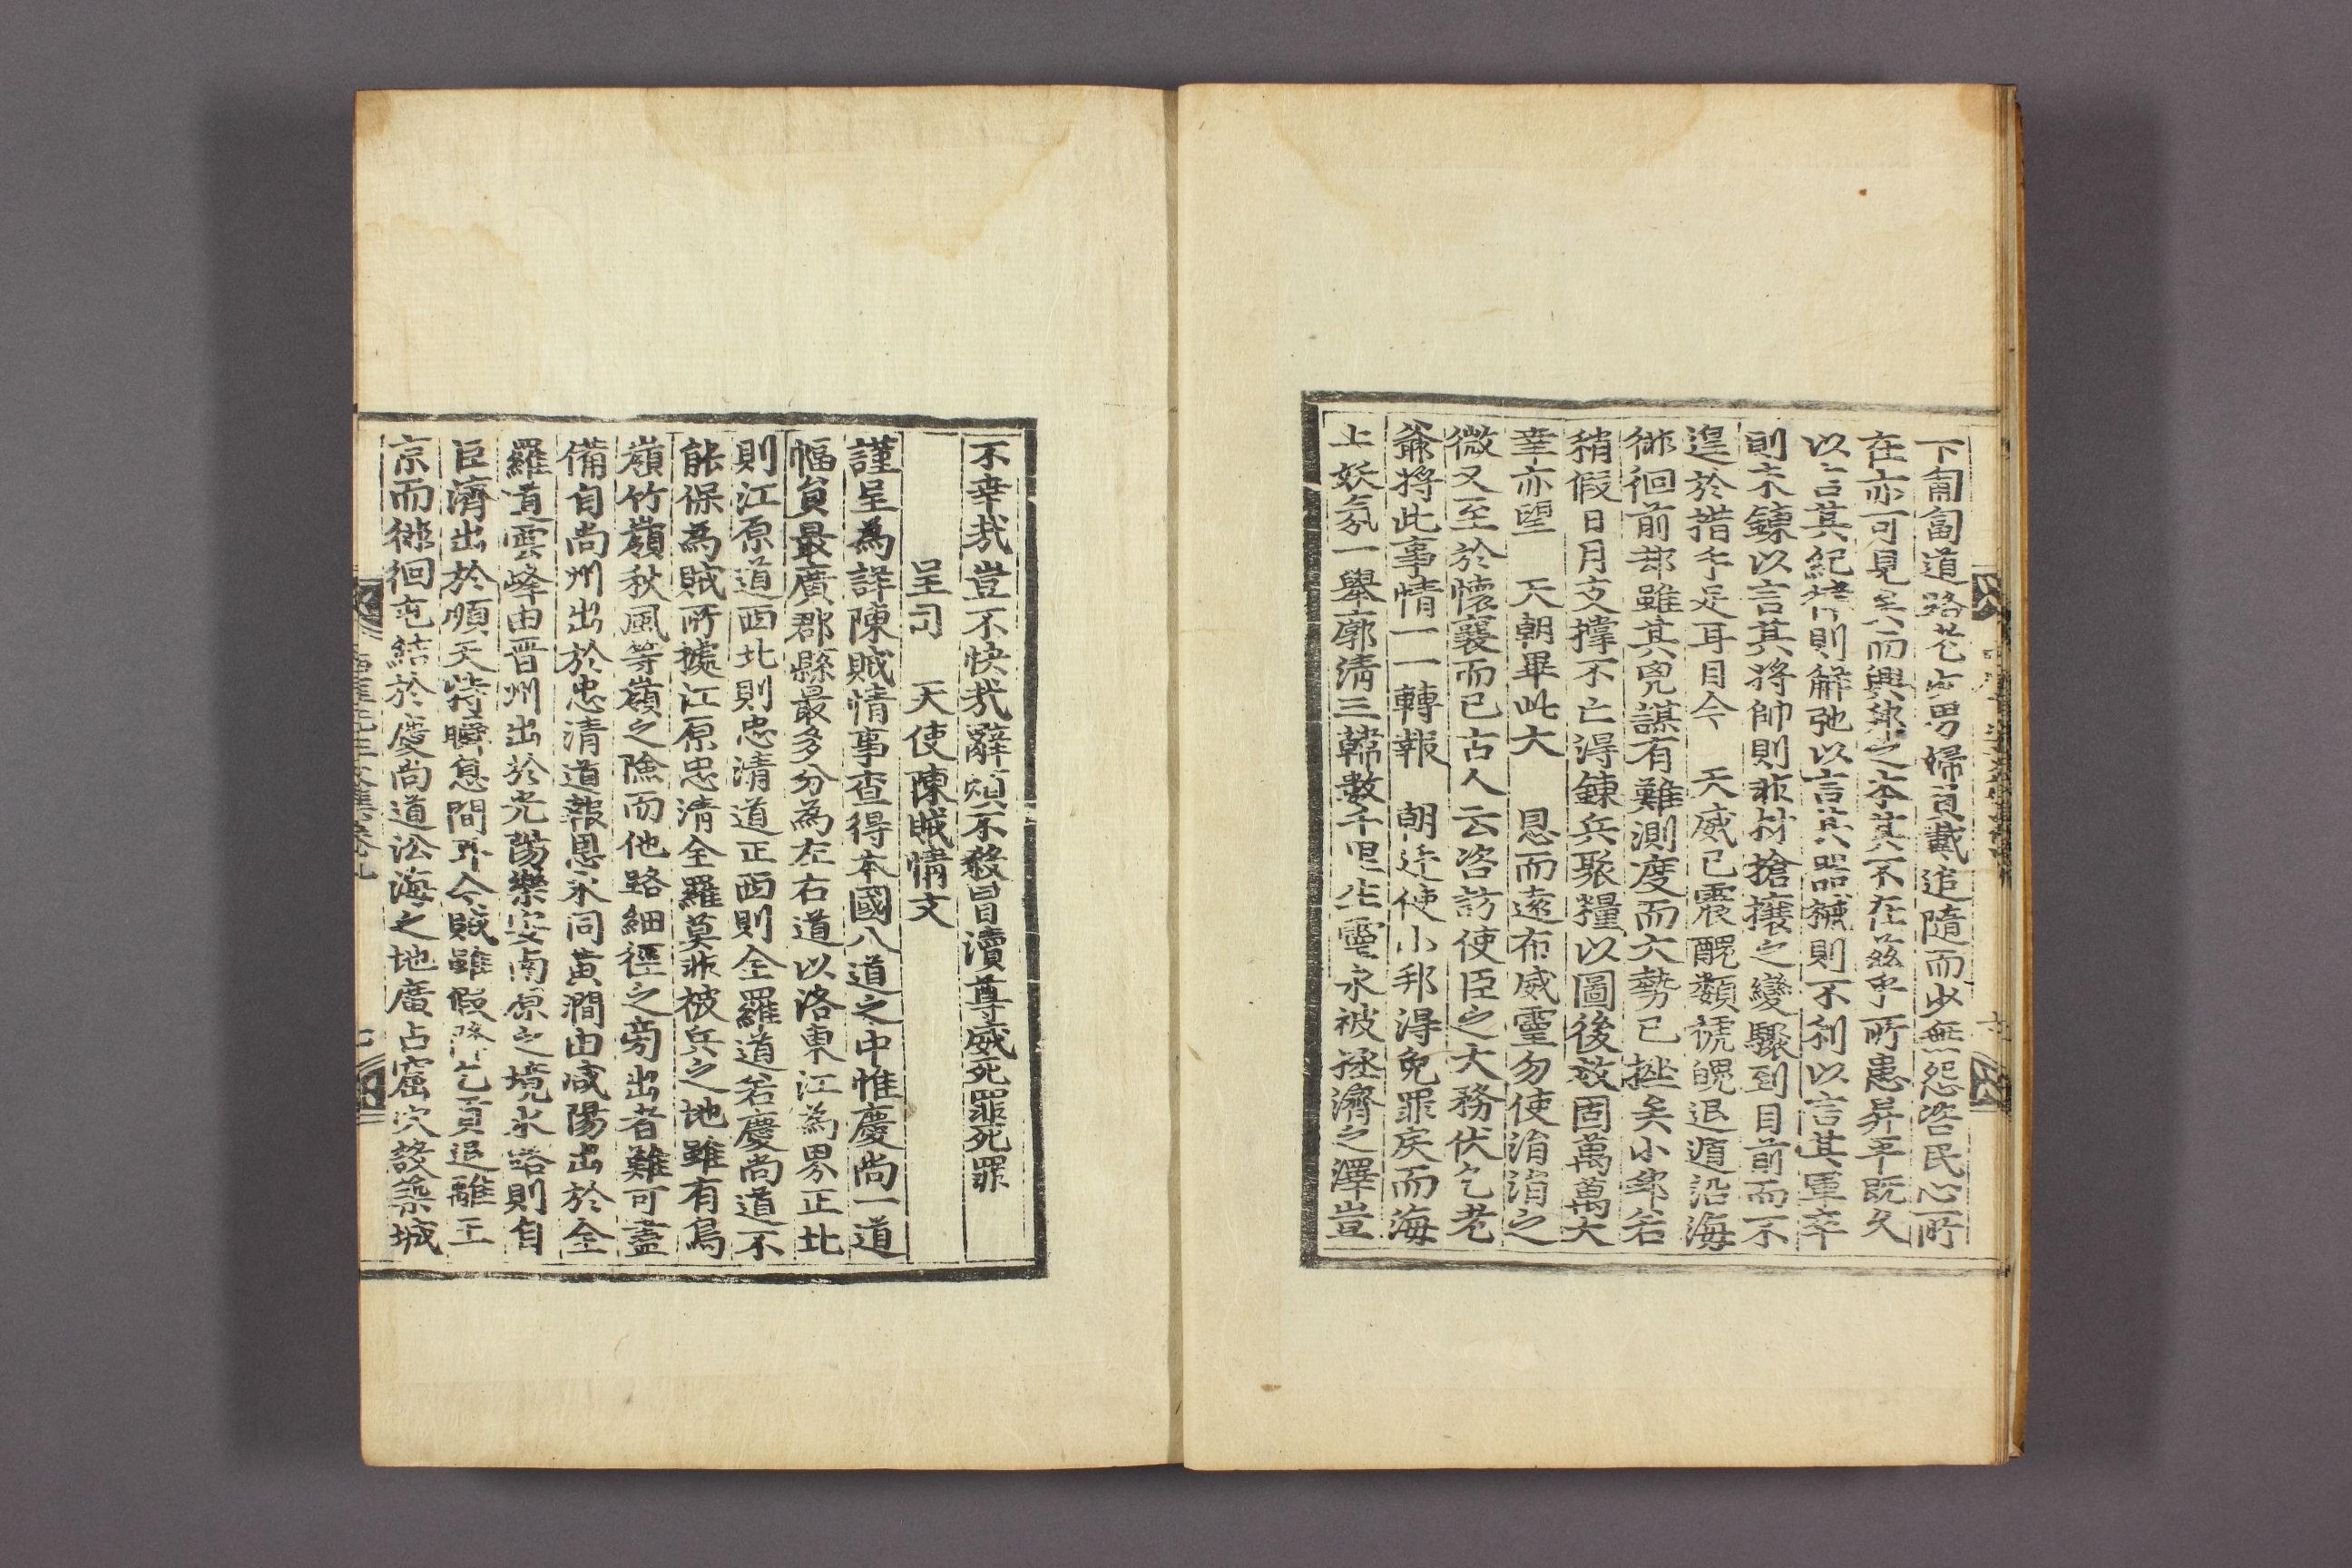 下匍匐道路老少男婦負戴追隨而少無怨咨民心所
在亦可見矣而興邦之本其不在茲乎所患昇平既久
以言其紀律則解弛以言其器械則不利以言其軍卒
則未鍊以言其將帥則非材搶攘之變驟到目前而不
遑於措手足耳目今 天威已震醜類褫魄退遁沿海
徘徊前却雖其兇謀有難測度而大勢已挫矣小邦若
稍假日月支撑不亡得鍊兵聚糧以圖後效固萬萬大
幸亦望 天朝畢此大 恩而遠布威靈勿使涓涓之
微又至於懷襄而已古人云咨訪使臣之大務伏乞老
爺將此事情一一轉報 朝廷使小邦得免罪戾而海
上妖氛一擧廓淸三韓數千里生靈永被拯濟之澤豈
不幸哉豈不快哉辭煩不殺冒瀆尊威死罪死罪
呈司 天使陳賊情文
謹呈為詳陳賊情事查得本國八道之中惟慶尚一道
幅員最廣郡縣最多分為左右道以洛東江為界正北
則江原道西北則忠清道正西則全羅道若慶尚道不
能保為賊所據江原忠清全羅莫非被兵之地雖有鳥
嶺竹嶺秋風等嶺之險而他路細徑之旁出者難可盡
備自尚州出於忠清道報恩永同黃澗由咸陽出於全
羅道雲峰由晋州出於光陽樂安南原之境水路則自
巨濟出於順天特瞬息間耳今賊雖假降乞貢退離王
京而徘徊屯結於慶尚道沿海之地廣占窟穴設築城